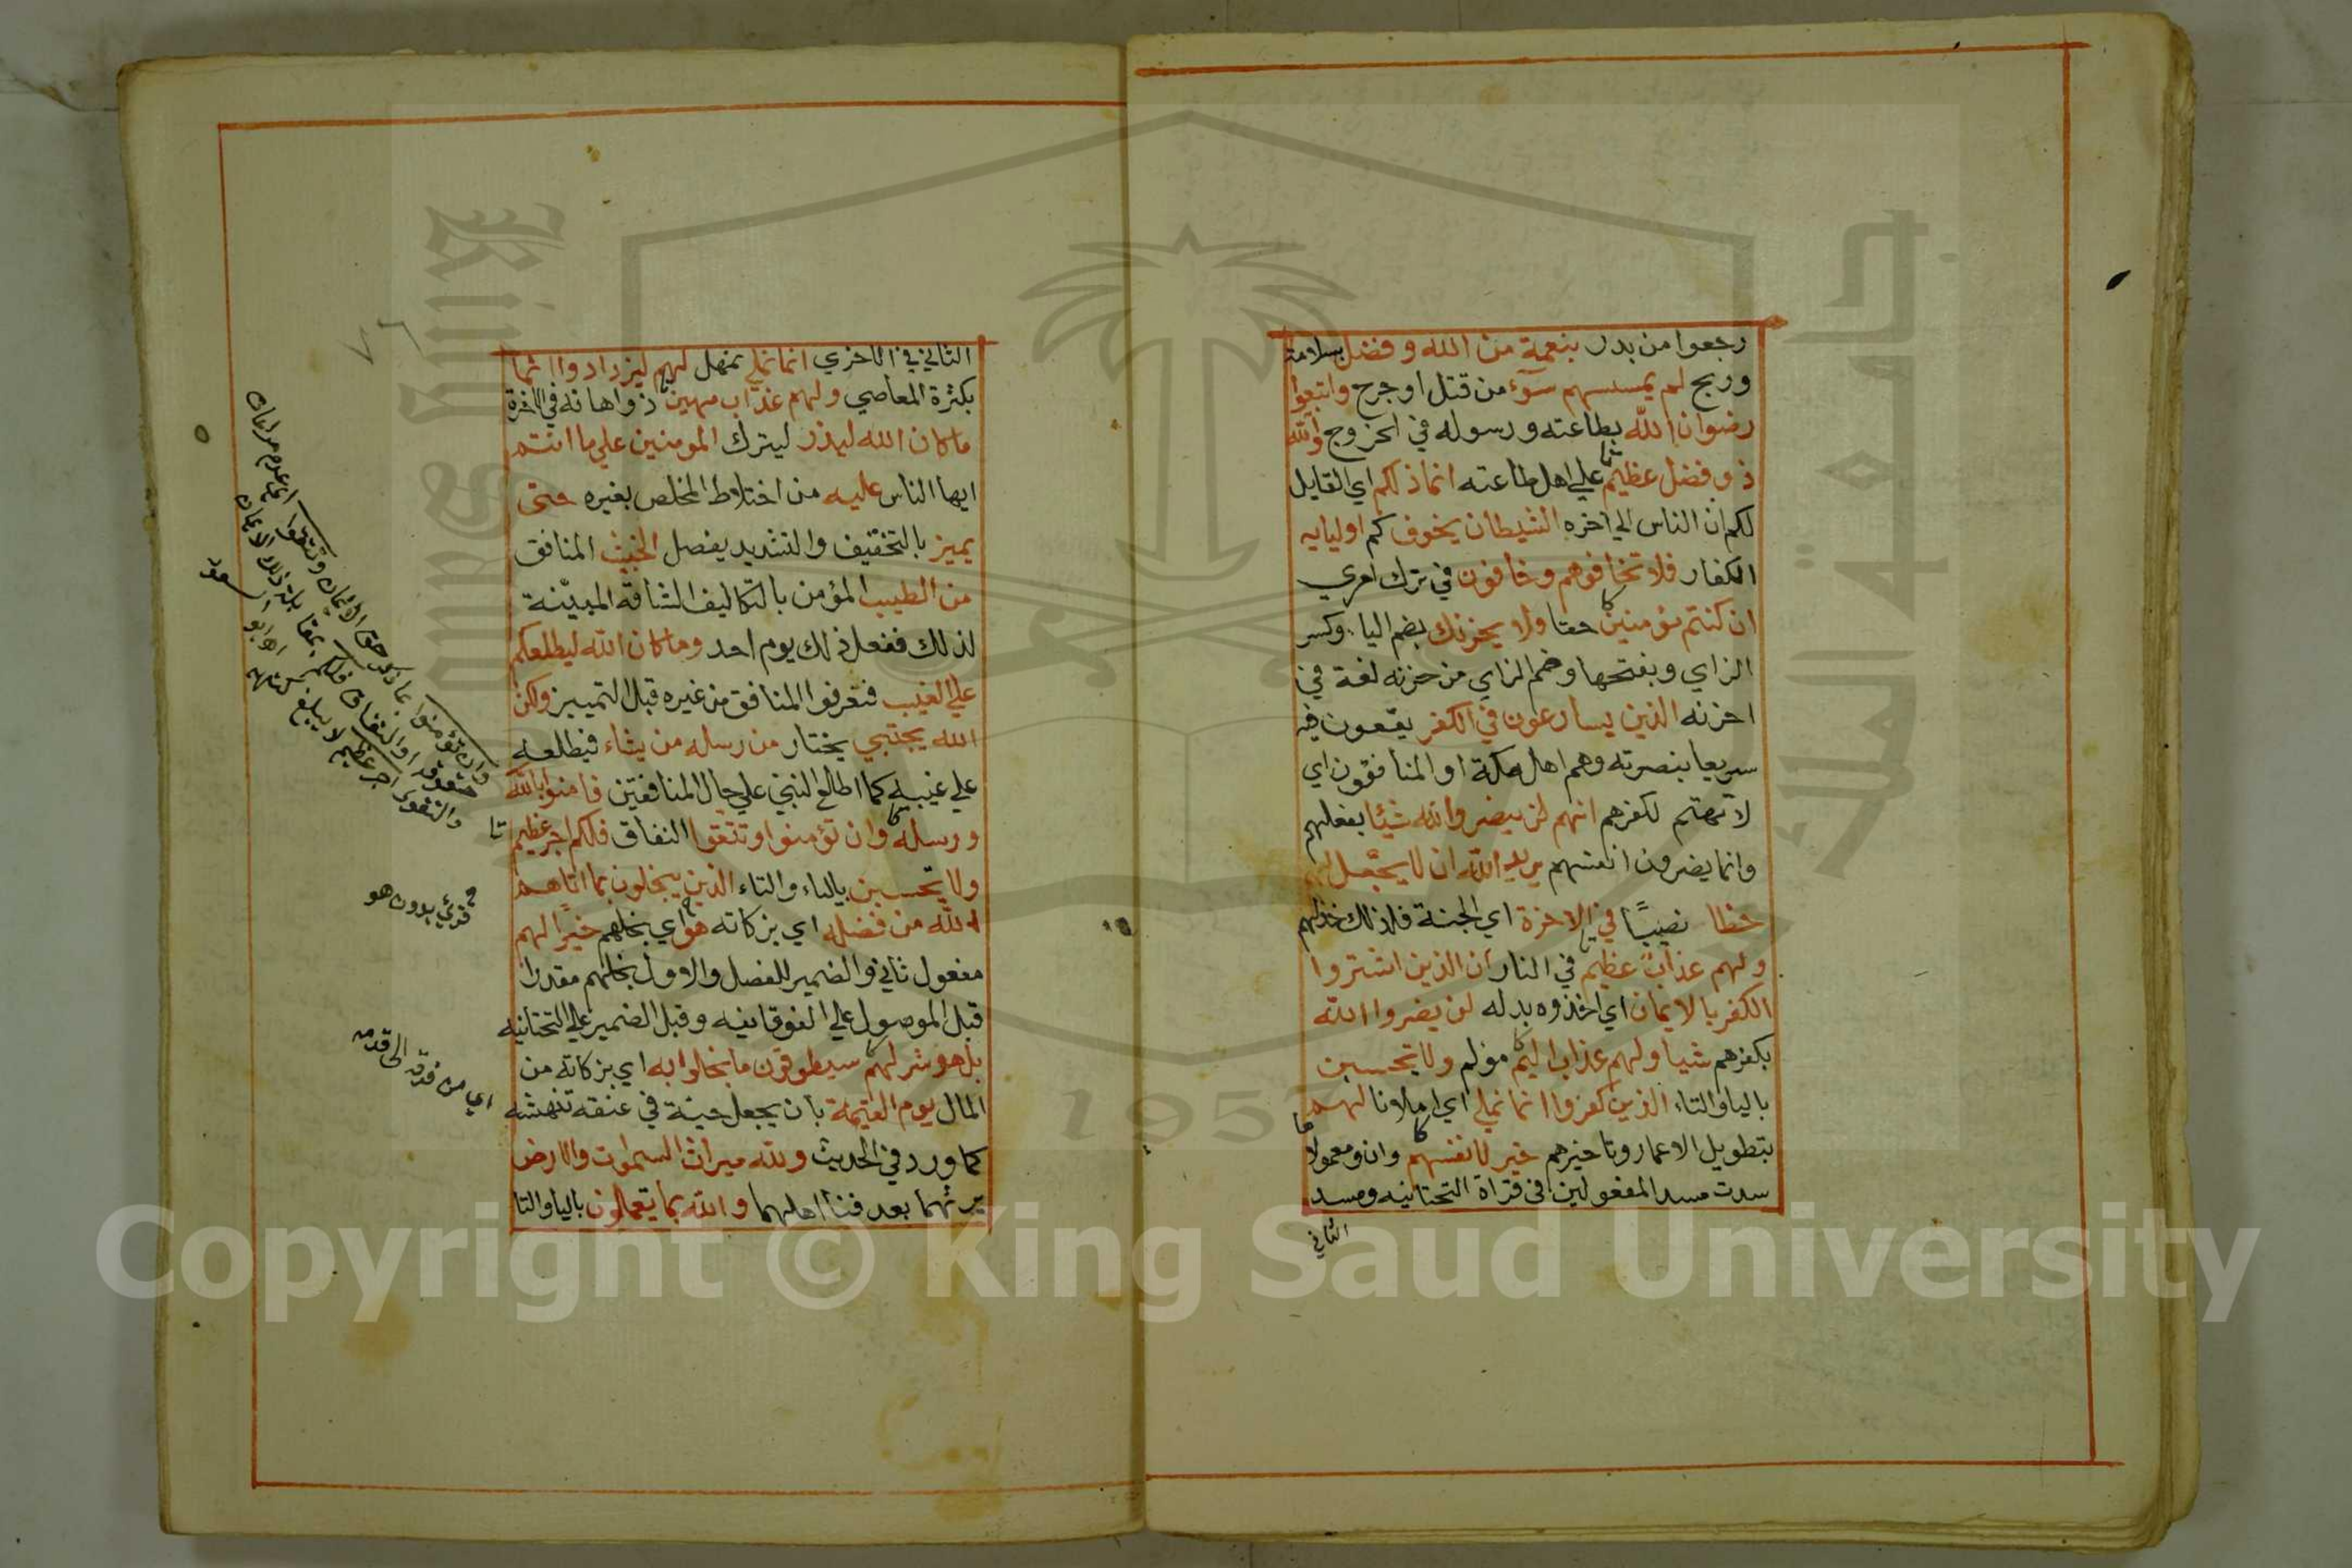 رجعوا من بدر بنعمة من الله وفضل بسلامة
وربح لم يمسسهم سوء من قتل او جرح واتبعوا
رضوان الله بطاعته ورسوله في الخروج والله
ذو فضل عظيم علي اهل طاعته انما ذلكم اي القايل
لكم ان الناس الي اخره الشيطان يخوف كم اوليايه
الكفار فلا تخافوهم وخافون في ترك امري
ان كنتم مؤمنين حقا ولا يحزنك بضم اليا وكسر
الزاي وبفتحها وضم الزاي من حزنه لغة في
احزنه الذين يسارعون في الكفر يقعون فيه
سريعا بنصرته وهم اهل مكة او المنافقون اي
لا تهتم لكفرهم انهم لن يضروا الله شيئا بفعلهم
وانما يضرون انفسهم يريد الله ان لا يجعل لهم
حظا نصيبًا في الاخرة اي الجنة فلذلك خذلهم
ولهم عذاب عظيم في النار ان الذين اشتروا
الكفر بالايمان اي اخذوه بدله لن يضروا الله
بكفرهم شيا ولهم عذاب اليم مؤلم ولا يحسبن
باليا والتاء الذين كفروا انما نملي اي املاونا لهم
بتطويل الاعمار وتاخيرهم خير لانفسهم وان ومعمولا
ها
سدت مسد المفعولين في قراة التحتانيه ومسد
الثاني
الثاني في الاخري انما نملي نمهل لهم ليزدادوا اثما
بكثرة المعاصي ولهم عذاب مهين ذو اهانه في الاخرة
ما كان الله ليذر ليترك المومنين علي ما انتم
ايها الناس عليه من اختلاط المخلص بغيره حتى
يميز بالتخفيف والتشديد يفصل الخبيث المنافق
من الطيب المؤمن بالتكاليف الشاقة المبينة
لذلك ففعل ذلك يوم احد وما كان الله ليطلعكم
علي الغيب فتعرفوا المنافق من غيره قبل التمييز ولكن
الله يجتبي يختار من رسله من يشاء فيطلعه
علي غيبه كما اطلع النبي علي حال المنافقين فامنوا بالله
ورسله وان تؤمنوا وتتقوا النفاق فلكم اجر عظيم
ولا يحسبن بالياء والتاء الذين يبخلون بما اتاهم
الله من فضله اي بزكاته هو اي بخلهم خيرا لهم
مفعول ثاني والضمير للفصل والاول بخلهم مقدرا
قبل الموصول علي الفوقانيه وقبل الضمير علي التحتانيه
بل هو شر لهم سيطوقون ما بخلوا به اي بزكاته من
المال يوم القيمة بان يجعل حية في عنقه تنهشه
كما ورد في الحديث ولله ميراث السموات والارض
يرثهما بعد فنا اهلهما والله بما يعملون باليا والتا
وان تؤمنوا بما ذكر حق الايمان وتتقوا
والتقوى اجر عظيم لا يبلغ
قرئ بدون هو
اي من فرقه الى قدمه
Copyright © King Saud University
1957